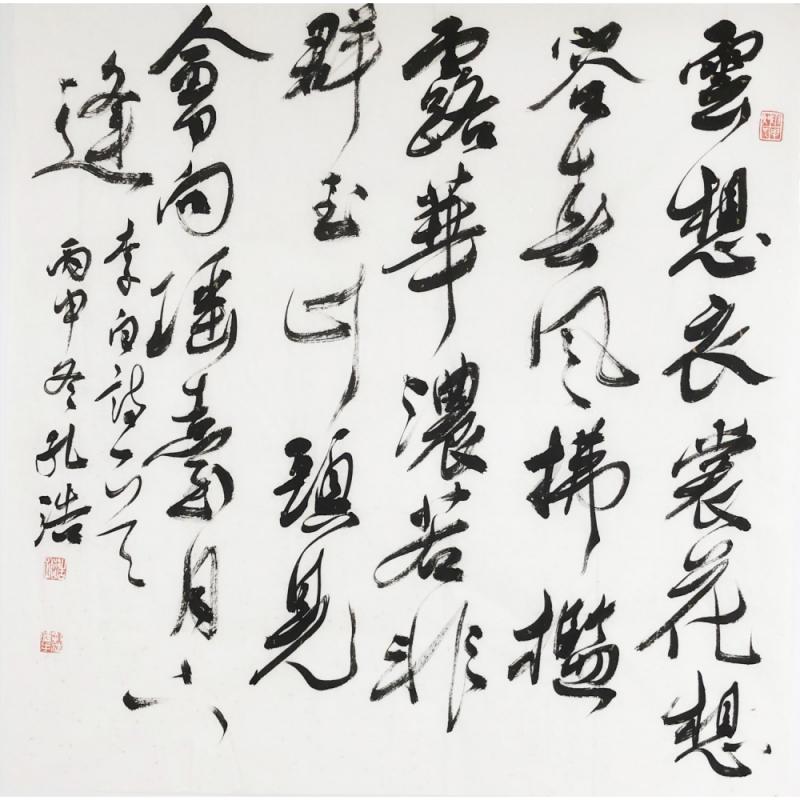 雲想衣裳花想
容春風拂檻
露華濃若非
群玉山頭見
會向瑤臺月下
逢
李白詩一首
丙申冬孔浩